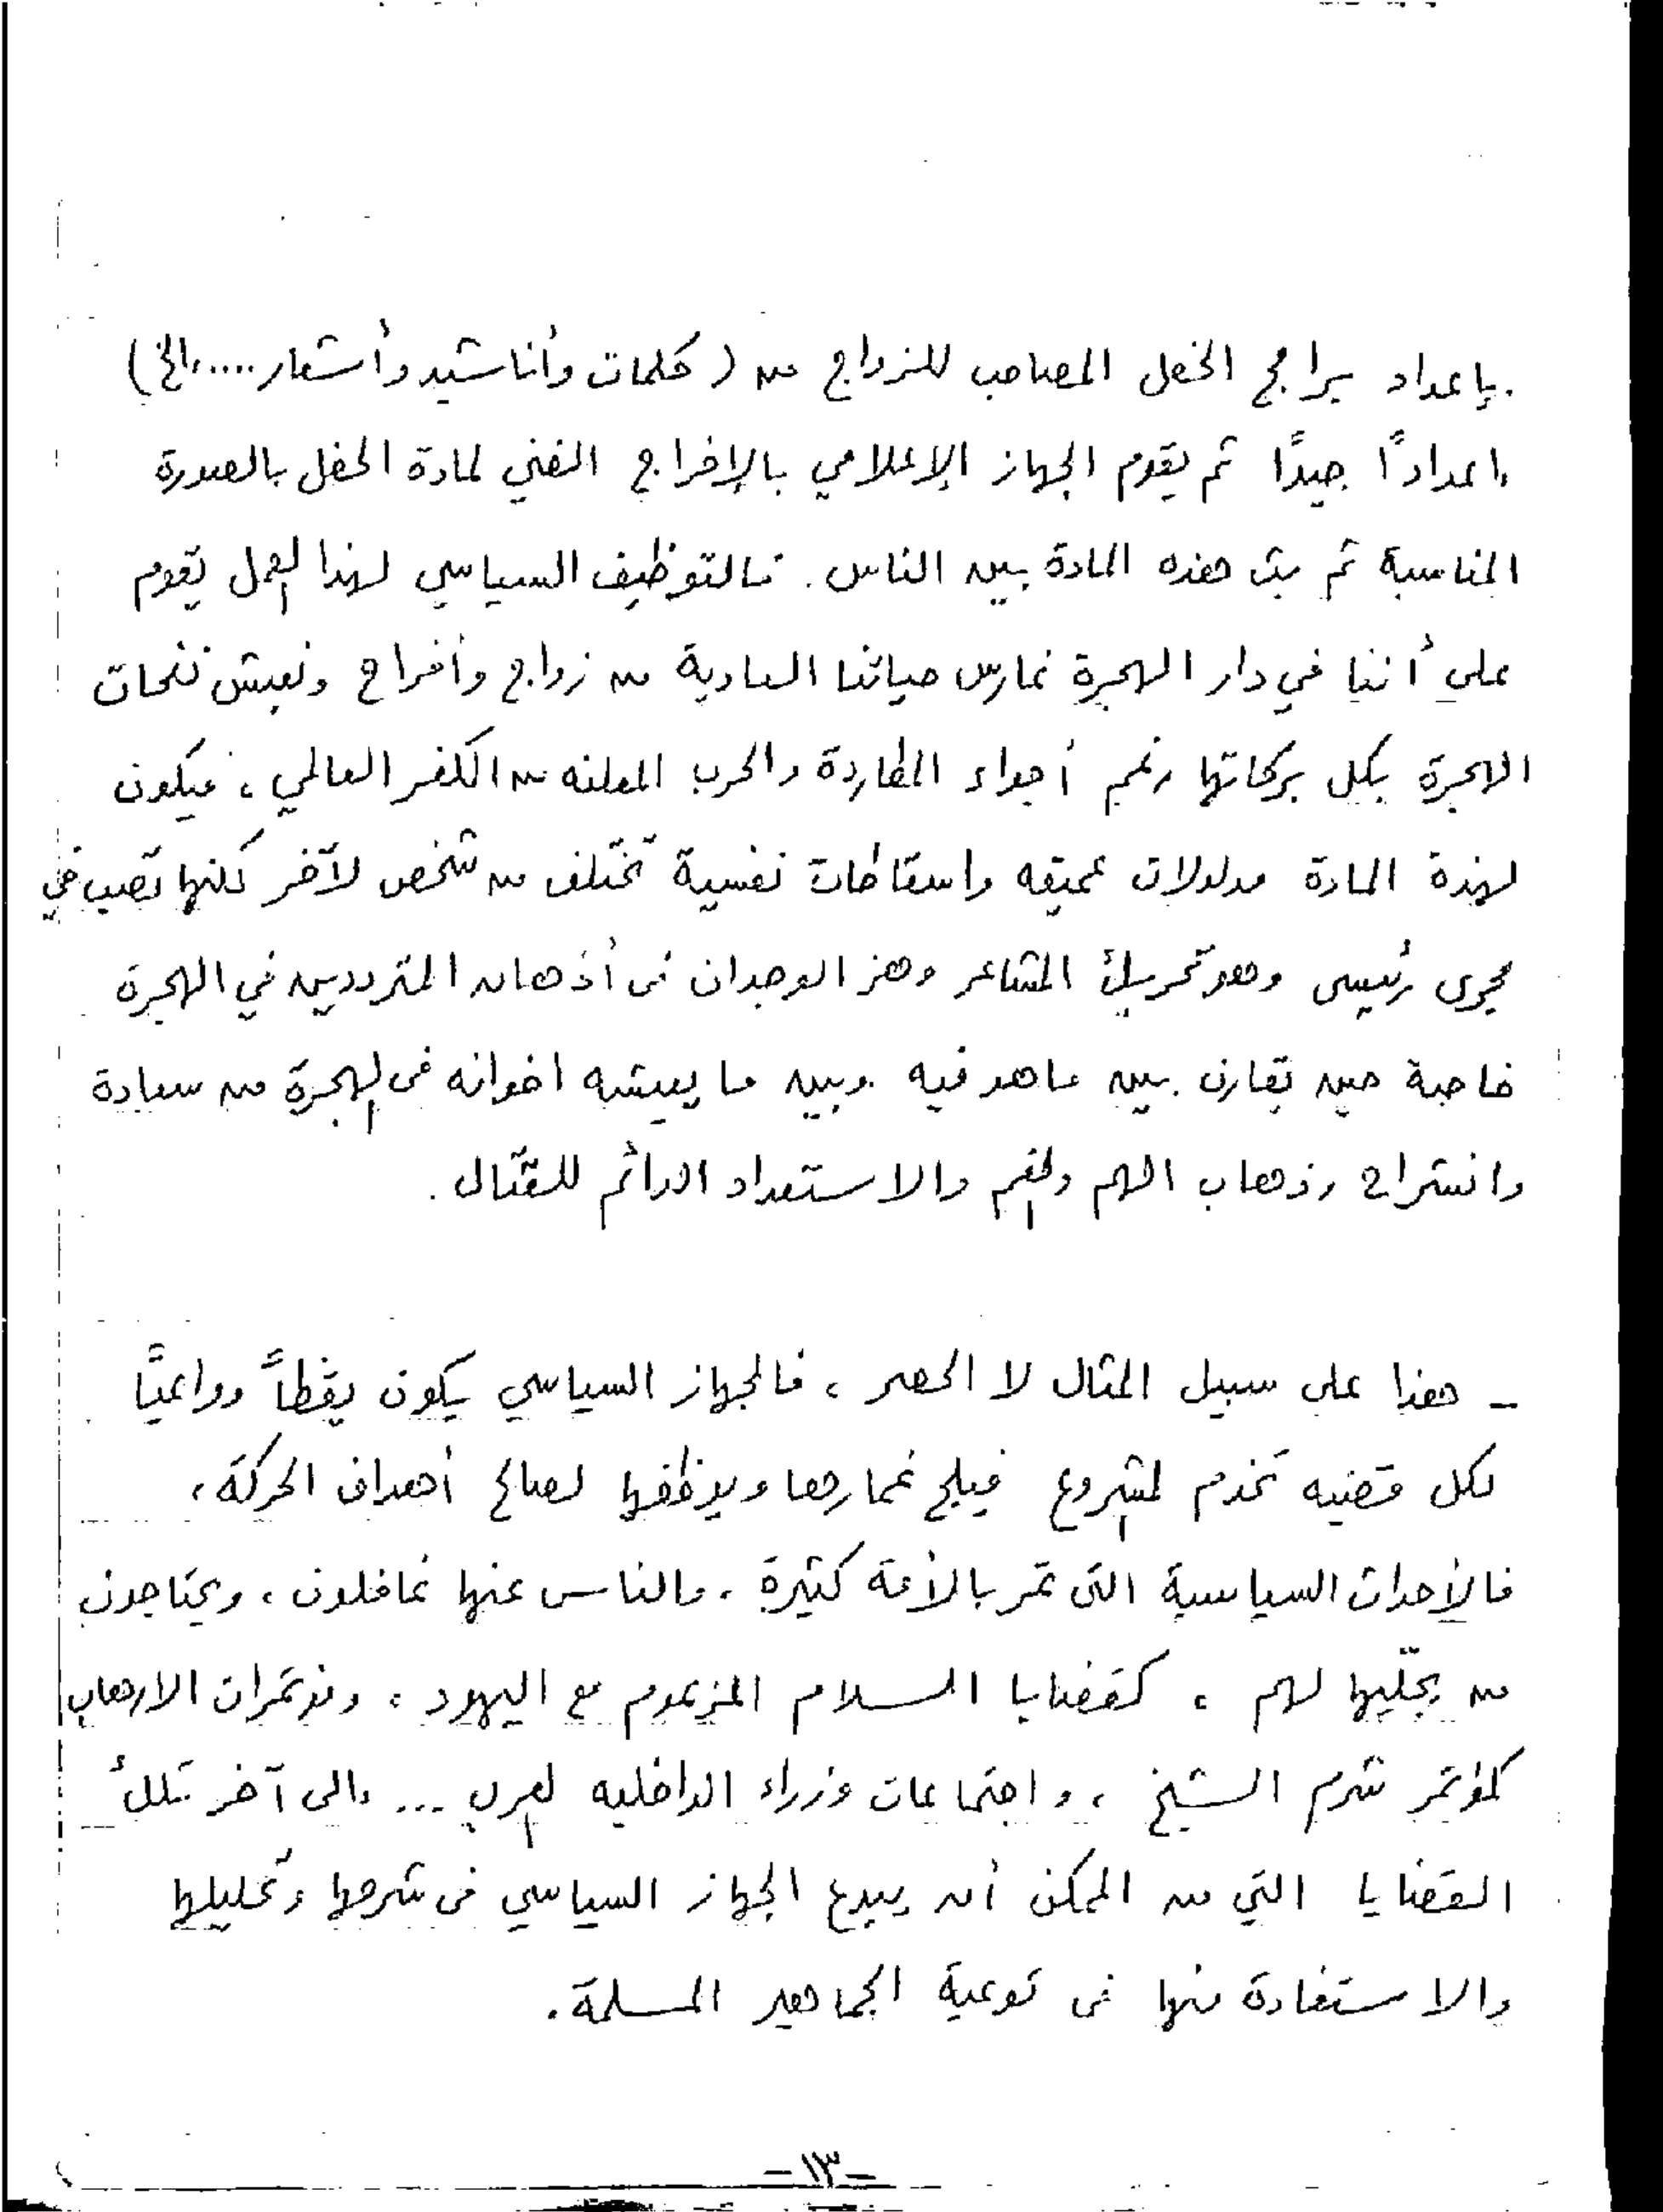 بإعداد برامج الحفل المصاحب للزواج من ( كلمات وأناشيد وأشعار .....إلخ )
إعداداً جيداً ثم يقوم الجهاز الإعلامي بالإخراج الفني لمادة الحفل بالصورة
المناسبة ثم بث هذه المادة بين الناس . فالتوظيف السياسي لهذا العمل يقوم
على أننا في دار الهجرة نمارس حياتنا العادية من زواج وأفراح ونعيش نفحات
الهجرة بكل بركاتها رغم أجواء المطاردة والحرب المعلنه من الكفر العالمي ، فيكون
لهذة المادة مدلولات عميقه واسقاطات نفسية تختلف من شخص لآخر لكنها تصب في
مجرى رئيسى وهو تحريك المشاعر وهز الوجدان فى أذهان المترددين في الهجرة
خاصة حين يقارن بين ماهو فيه وبين ما يعيشه اخوانه فى الهجرة من سعادة
وانشراح وذهاب الهم والغم والاستعداد الدائم للقتال .
ـ هذا على سبيل المثال لا الحصر ، فالجهاز السياسي يكون يقظاً وواعياً
لكل قضيه تخدم المشروع فيلج غمارها ويوظفها لصالح أهداف الحركة ،
فالأحداث السياسية التى تمر بالأمة كثيرة ، والناس عنها غافلون ، ويحتاجون
من يجلّيها لهم ، كقضايا السلام المزعوم مع اليهود ، ومؤتمرات الارهاب
كمؤتمر شرم الشيخ ، واجتماعات وزراء الداخليه العرب ... إلى آخر تلك
القضايا التي من الممكن أن يبدع الجهاز السياسي فى شرحها وتحليلها
والاستفادة منها فى توعية الجماهير المسلمة .
ـ ١٣ ـ